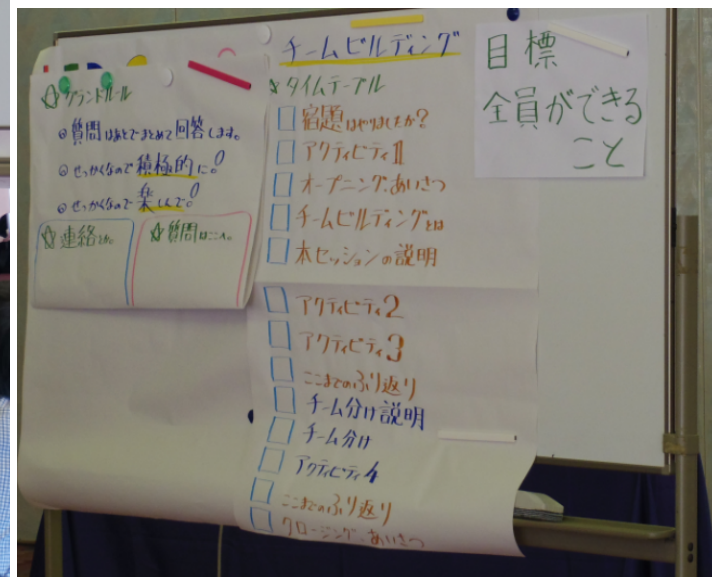 チームビルディング
☆グランドルール
◎質問はあとでまとめて回答します。
◎せっかくなので積極的に!
◎せっかくなので楽しんで!
☆連絡とか。
☆質問はここへ。
☆タイムテーブル
宿題はやりましたか?
アクティビティ1
オープニング・あいさつ
チームビルディングとは
本セッションの説明
アクティビティ2
アクティビティ3
ここまでのふり返り
チーム分け説明
チーム分け
アクティビティ4
ここまでのふり返り
クロージング・あいさつ
目標
全員ができる
こと